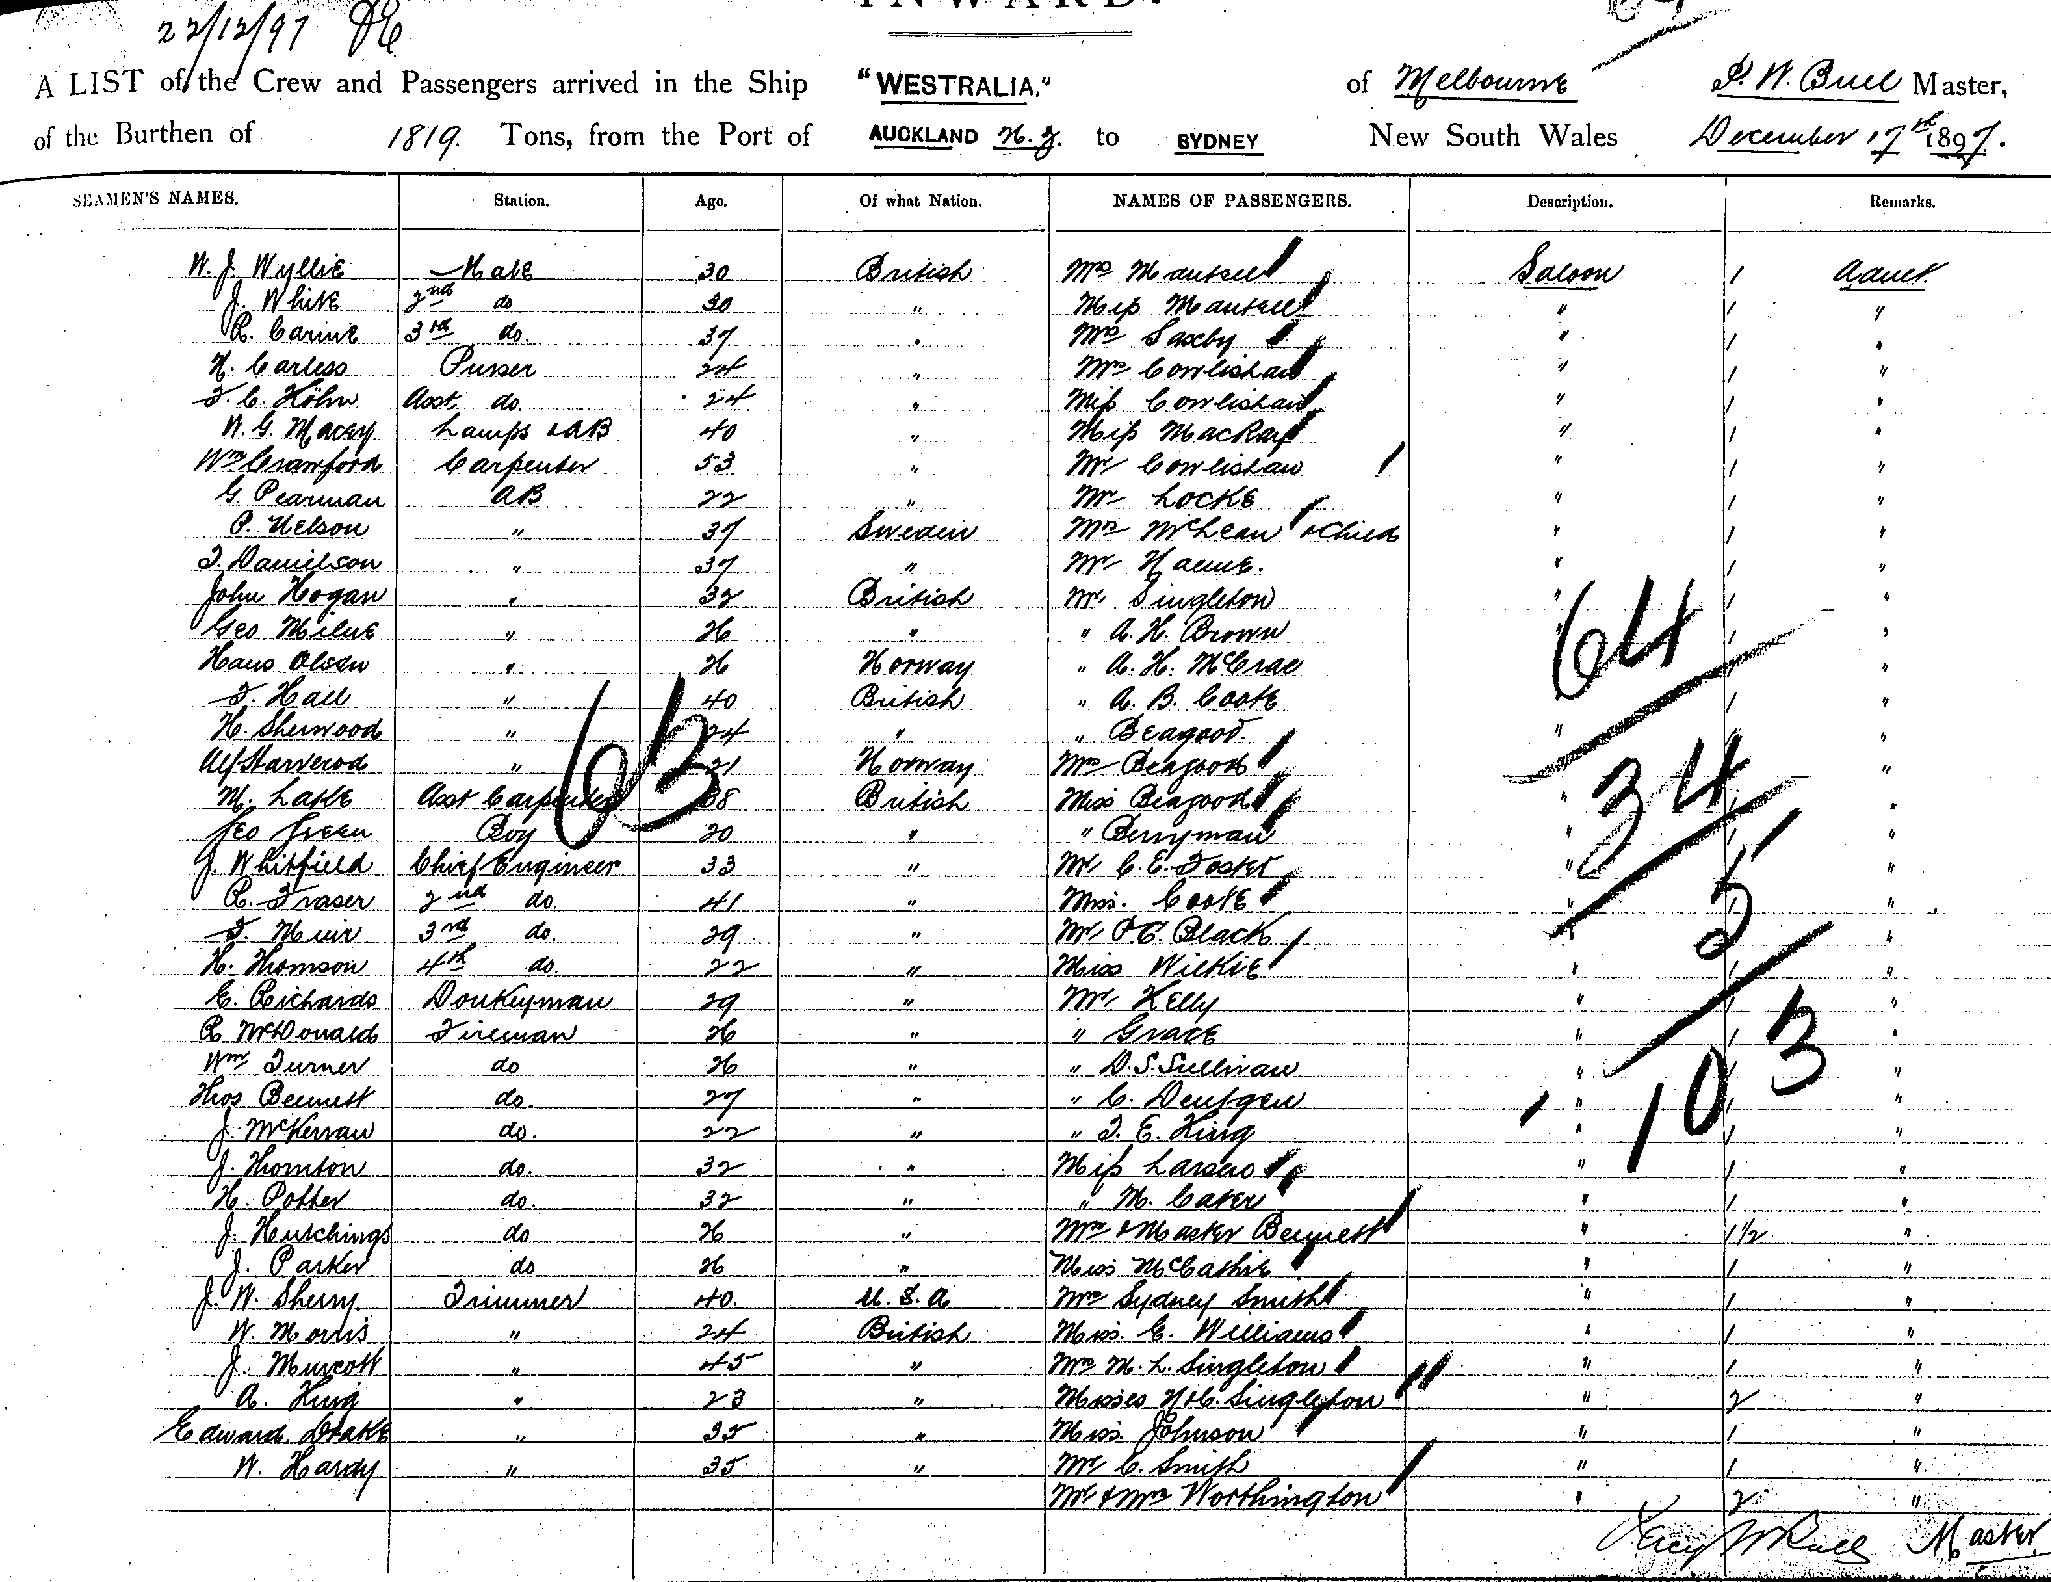 INWARD.
22/12/97
A LIST of the Crew and Passengers arrived in the Ship "WESTRALIA," of Melbourne P. W. Bull Master,
of the Burthen of 1819. Tons, from the Port of AUCKLAND N.Z. to SYDNEY New South Wales December 17th 1897.
SEAMEN'S NAMES. Station. Age. Of what Nation. NAMES OF PASSENGERS. Description. Remarks.
W. J. Wyllie Mate 30 British Mrs Mantell Saloon 1 Adult
J. White 2nd do 30 " Miss Mantell " 1 "
R. Carine 3rd do. 37 " Mrs Saxby " 1 "
H. Carless Purser 24 " Mrs Cowlishaw " 1 "
F. C. Höhn Asst. do. 24 " Miss Cowlishaw " 1 "
W. G. Macey Lamps & AB 40 " Miss MacKay " 1 "
Wm Crawford Carpenter 53 " Mr Cowlishaw " 1 "
G. Pearman AB 22 " Mr Locke " 1 "
P. Nelson " 37 Sweden Mrs McLean & Child " 1 "
F. Danielson " 37 " Mr " 1 "
John Hogan " 32 British Mr Singleton " 1 "
Geo Milne " 26 " " A. H. Brown " 1 "
Hans Olsen " 26 Norway " A. H. McCrae " 1 "
F. Hall " 40 British " A. B. Cooke " 1 "
H. Sherwood " 24 " " Beagood. " 1 "
Alf " 21 Norway Mrs Beagood " 1 "
M. Lake Asst Carpenter 38 British Miss Beagood " 1 "
Geo Green Boy 20 " " Berryman " 1 "
J. Whitfield Chief Engineer 33 " Mr C. E. Foster " 1 "
R. Fraser 2nd do. 41 " Miss. Cooke " 1 "
F. Muir 3rd do. 29 " Mr P. C. Black " 1 "
H. Thomson 4th do. 22 " Miss Wilkie " 1 "
E. Richards Donkeyman 29 " Mr Kelly " 1 "
R. McDonald Fireman 26 " " Grace " 1 "
Wm Turner do 26 " " D. S. Sullivan " 1 "
Thos Bennett do. 27 " " C. " 1 "
J. McKerrow do. 22 " " F. E. King " 1 "
J. Thornton do. 32 " Miss " 1 "
H. Potter do. 32 " " M. Cater " 1 "
J. Hutchings do 26 " Mrs & Master Bennett " 1 1/2 "
J. Parker do 26 " Miss McCathie " 1 "
J. W. Sherry Trimmer 40. U.S.A Mrs Sydney Smith " 1 "
W. Morris " 24 British Miss. E. Williams " 1 "
J. Murcott " 45 " Mrs M. L. Singleton " 1 "
A. King " 23 " Misses N & C. Singleton " 2 "
Edward Drake " 35 " Miss Johnson " 1 "
W. Hardy " 35 " Mr C. Smith " 1 "
Mr & Mrs Worthington " 2 "
Master
63
64
34
5
103